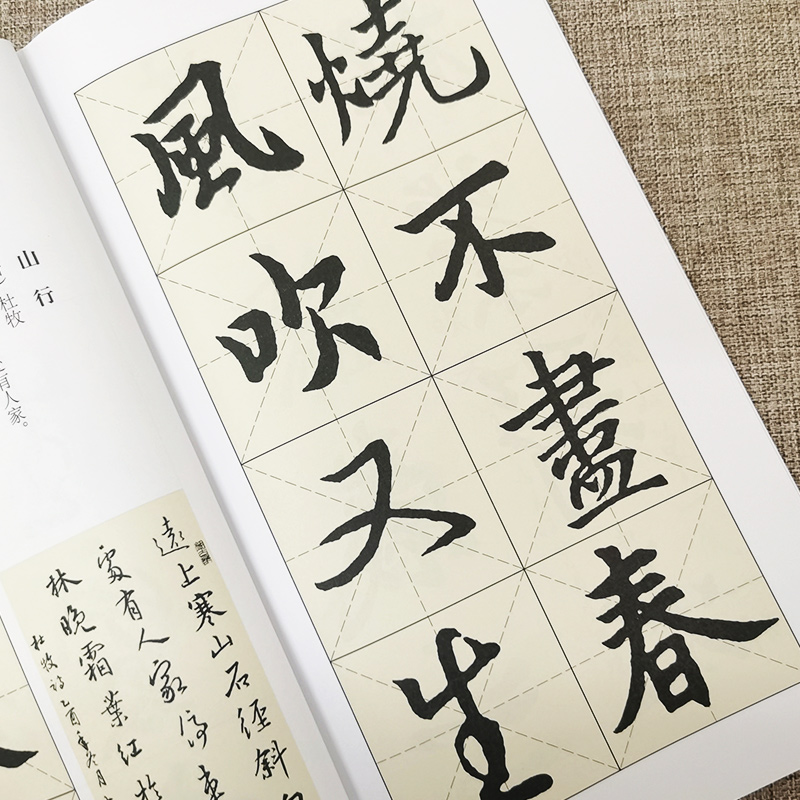 燒不盡春
風吹又生
山行
杜牧
有人家。
遠上寒山石徑斜
處有人家停車
林晚霜葉紅於
杜牧詩乙酉